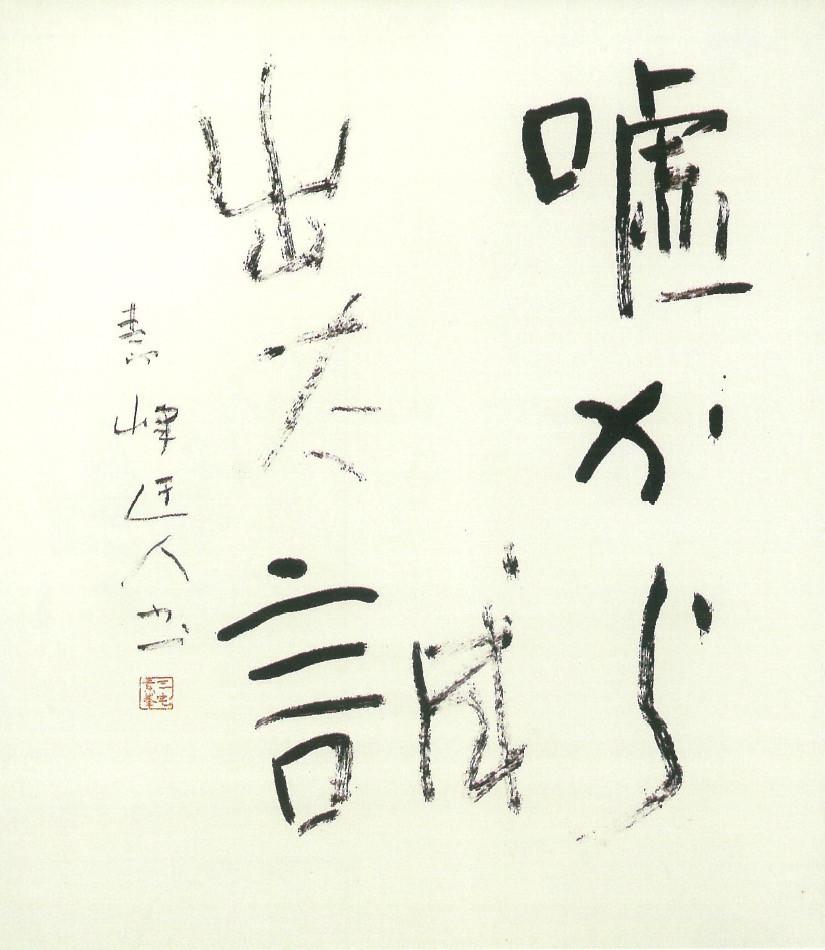 嘘から
出た誠
素峰迂人書